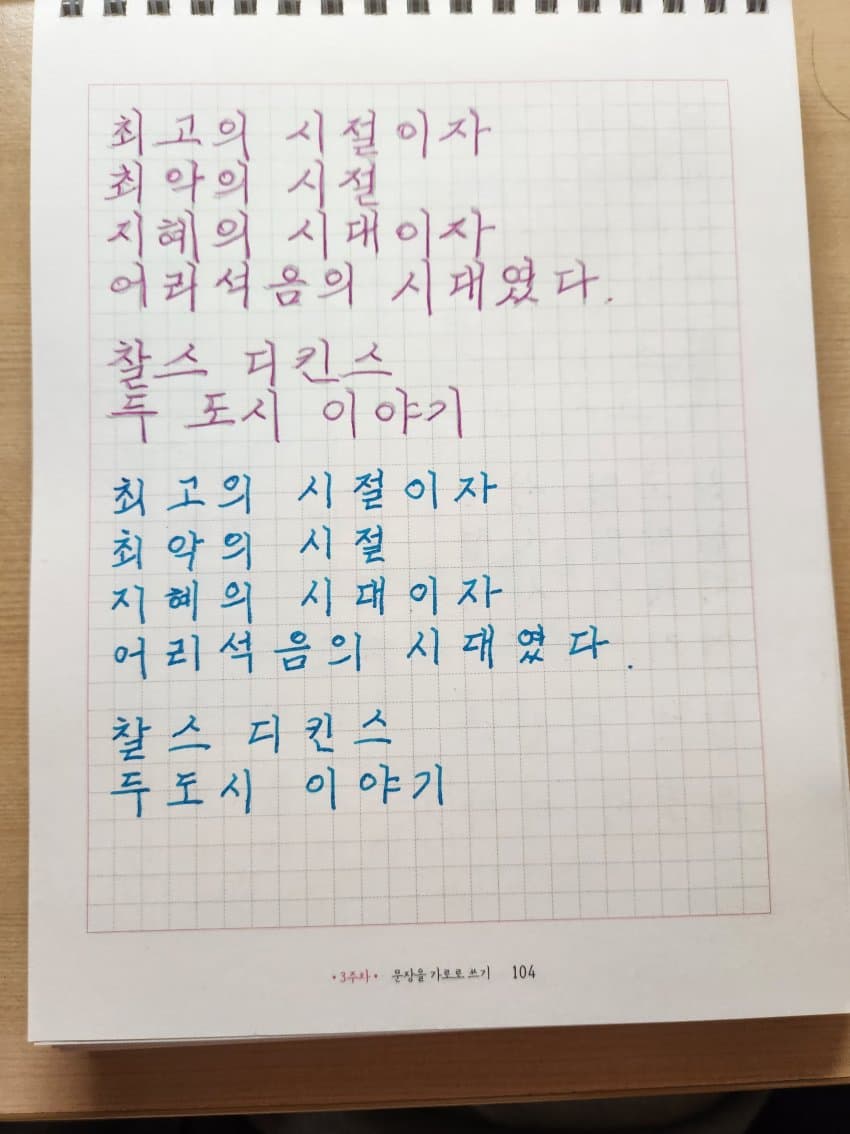 최고의 시절이자
최악의 시절
지혜의 시대이자
어리석음의 시대였다.
찰스 디킨스
두 도시 이야기
최고의 시절이자
최악의 시절
지혜의 시대이자
어리석음의 시대였다.
찰스 디킨스
두 도시 이야기
•3주차• 문장을 가로로 쓰기 104